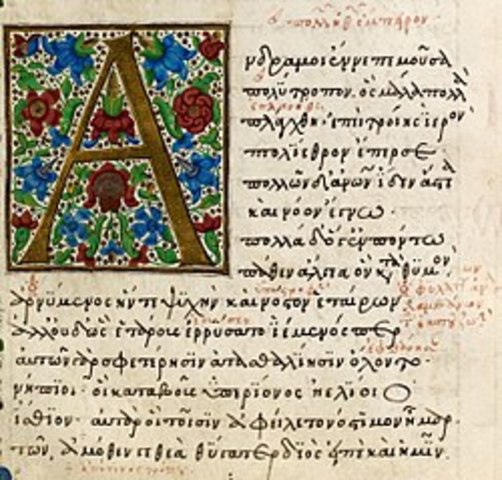 Ἄνδρα μοι ἔννεπε μοῦσα
πολύτροπον, ὃς μάλα πολλὰ
πλάγχθη· ἐπεὶ τροίης ἱερὸν
πτολίεθρον ἔπερσε·
πολλῶν δ' ἀνων ἴδεν ἄστεα
καὶ νόον ἔγνω·
πολλὰ δ' ὅγ' ἐν πόντω
πάθεν ἄλγεα ὃν κατὰ θυμὸν
ἀρνύμενος ἥν τε ψυχὴν καὶ νόστον ἑταίρων
ἀλλ' οὐδ' ὣς ἑτάρους ἐρρύσατο ἱέμενός περ
αὐτῶν γὰρ σφετέρησιν ἀτασθαλίησιν ὄλοντο
νήπιοι· οἳ κατὰ βοῦς ὑπερίονος ἠελίοιο
ἤσθιον· αὐτὰρ ὁ τοῖσιν ἀφείλετο νόστιμον ἦμαρ·
τῶν ἁμόθεν γε θεὰ θύγατερ διὸς εἰπὲ καὶ ἡμῖν.